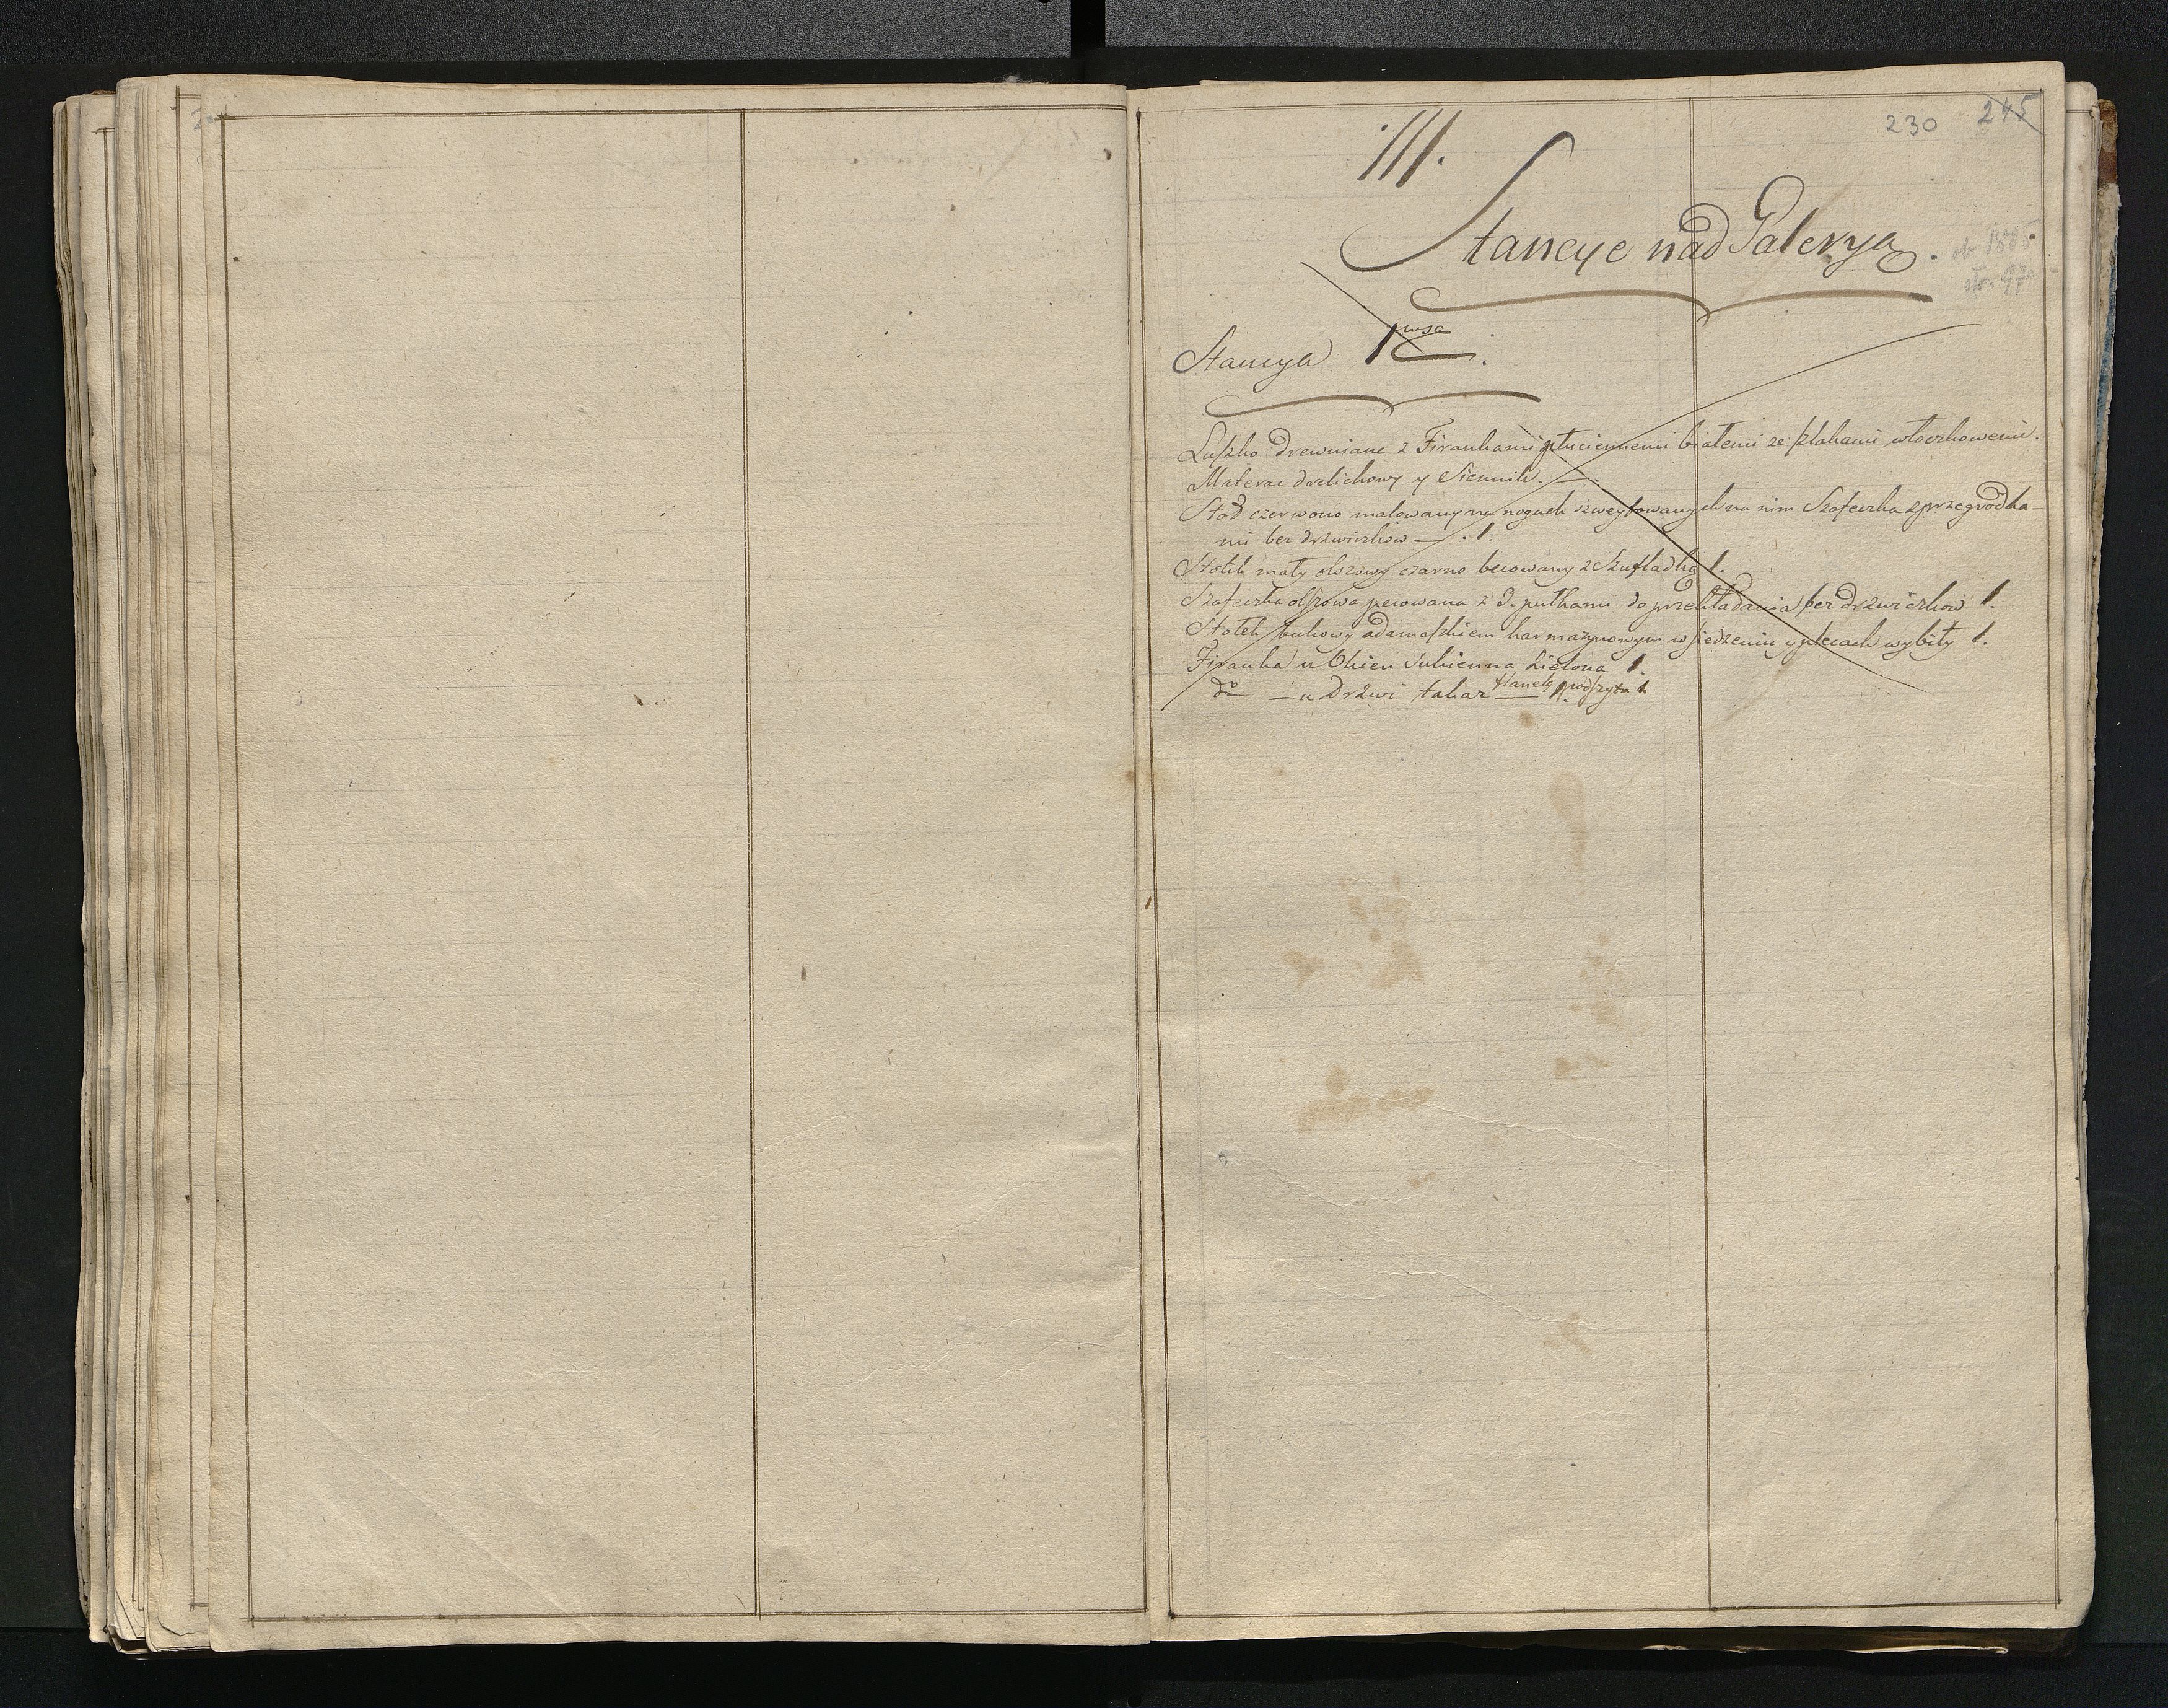 230 245
III.
Stancye nad Galeryą.
Stancya 1wsza.
Łuszko drewniane z Firankami płuciennemi białemi ze szlakami włoczkowemi.
Materac drelichowy y Siennik.
Stoł czerwono malowany na nogach szweyfowanych na nim Szafeczka z przegrodka-
mi bez drzwiczkow — . 1.
Stolik mały olszowy czarno becowany z Szufladką 1.
Szafeczka olszowa pecowana z 3. pułkami do przekładania bez drzwiczkow 1.
Stołek bukowy adamaszkiem karmazynowym w siedzeniu y plecach wybity 1.
Firanka u Okien Sukienna Zielona 1.
do — u Drzwi takaz flanelą podszyta 1